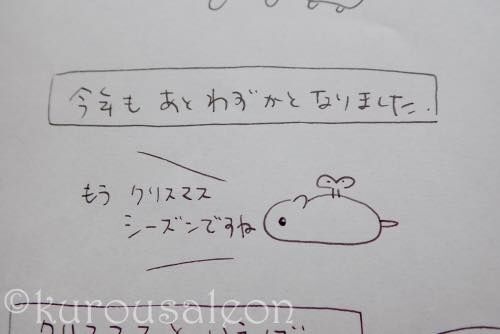 今年も あとわずかとなりました.
もう クリスマス
シーズンですね
クリスマスといえば
©kurousaleon